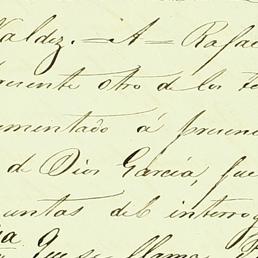 Valdez. — A — Rafae
presente otro de los te
umentado á presen
de Dios García, fue
untas del interrog
que se llama